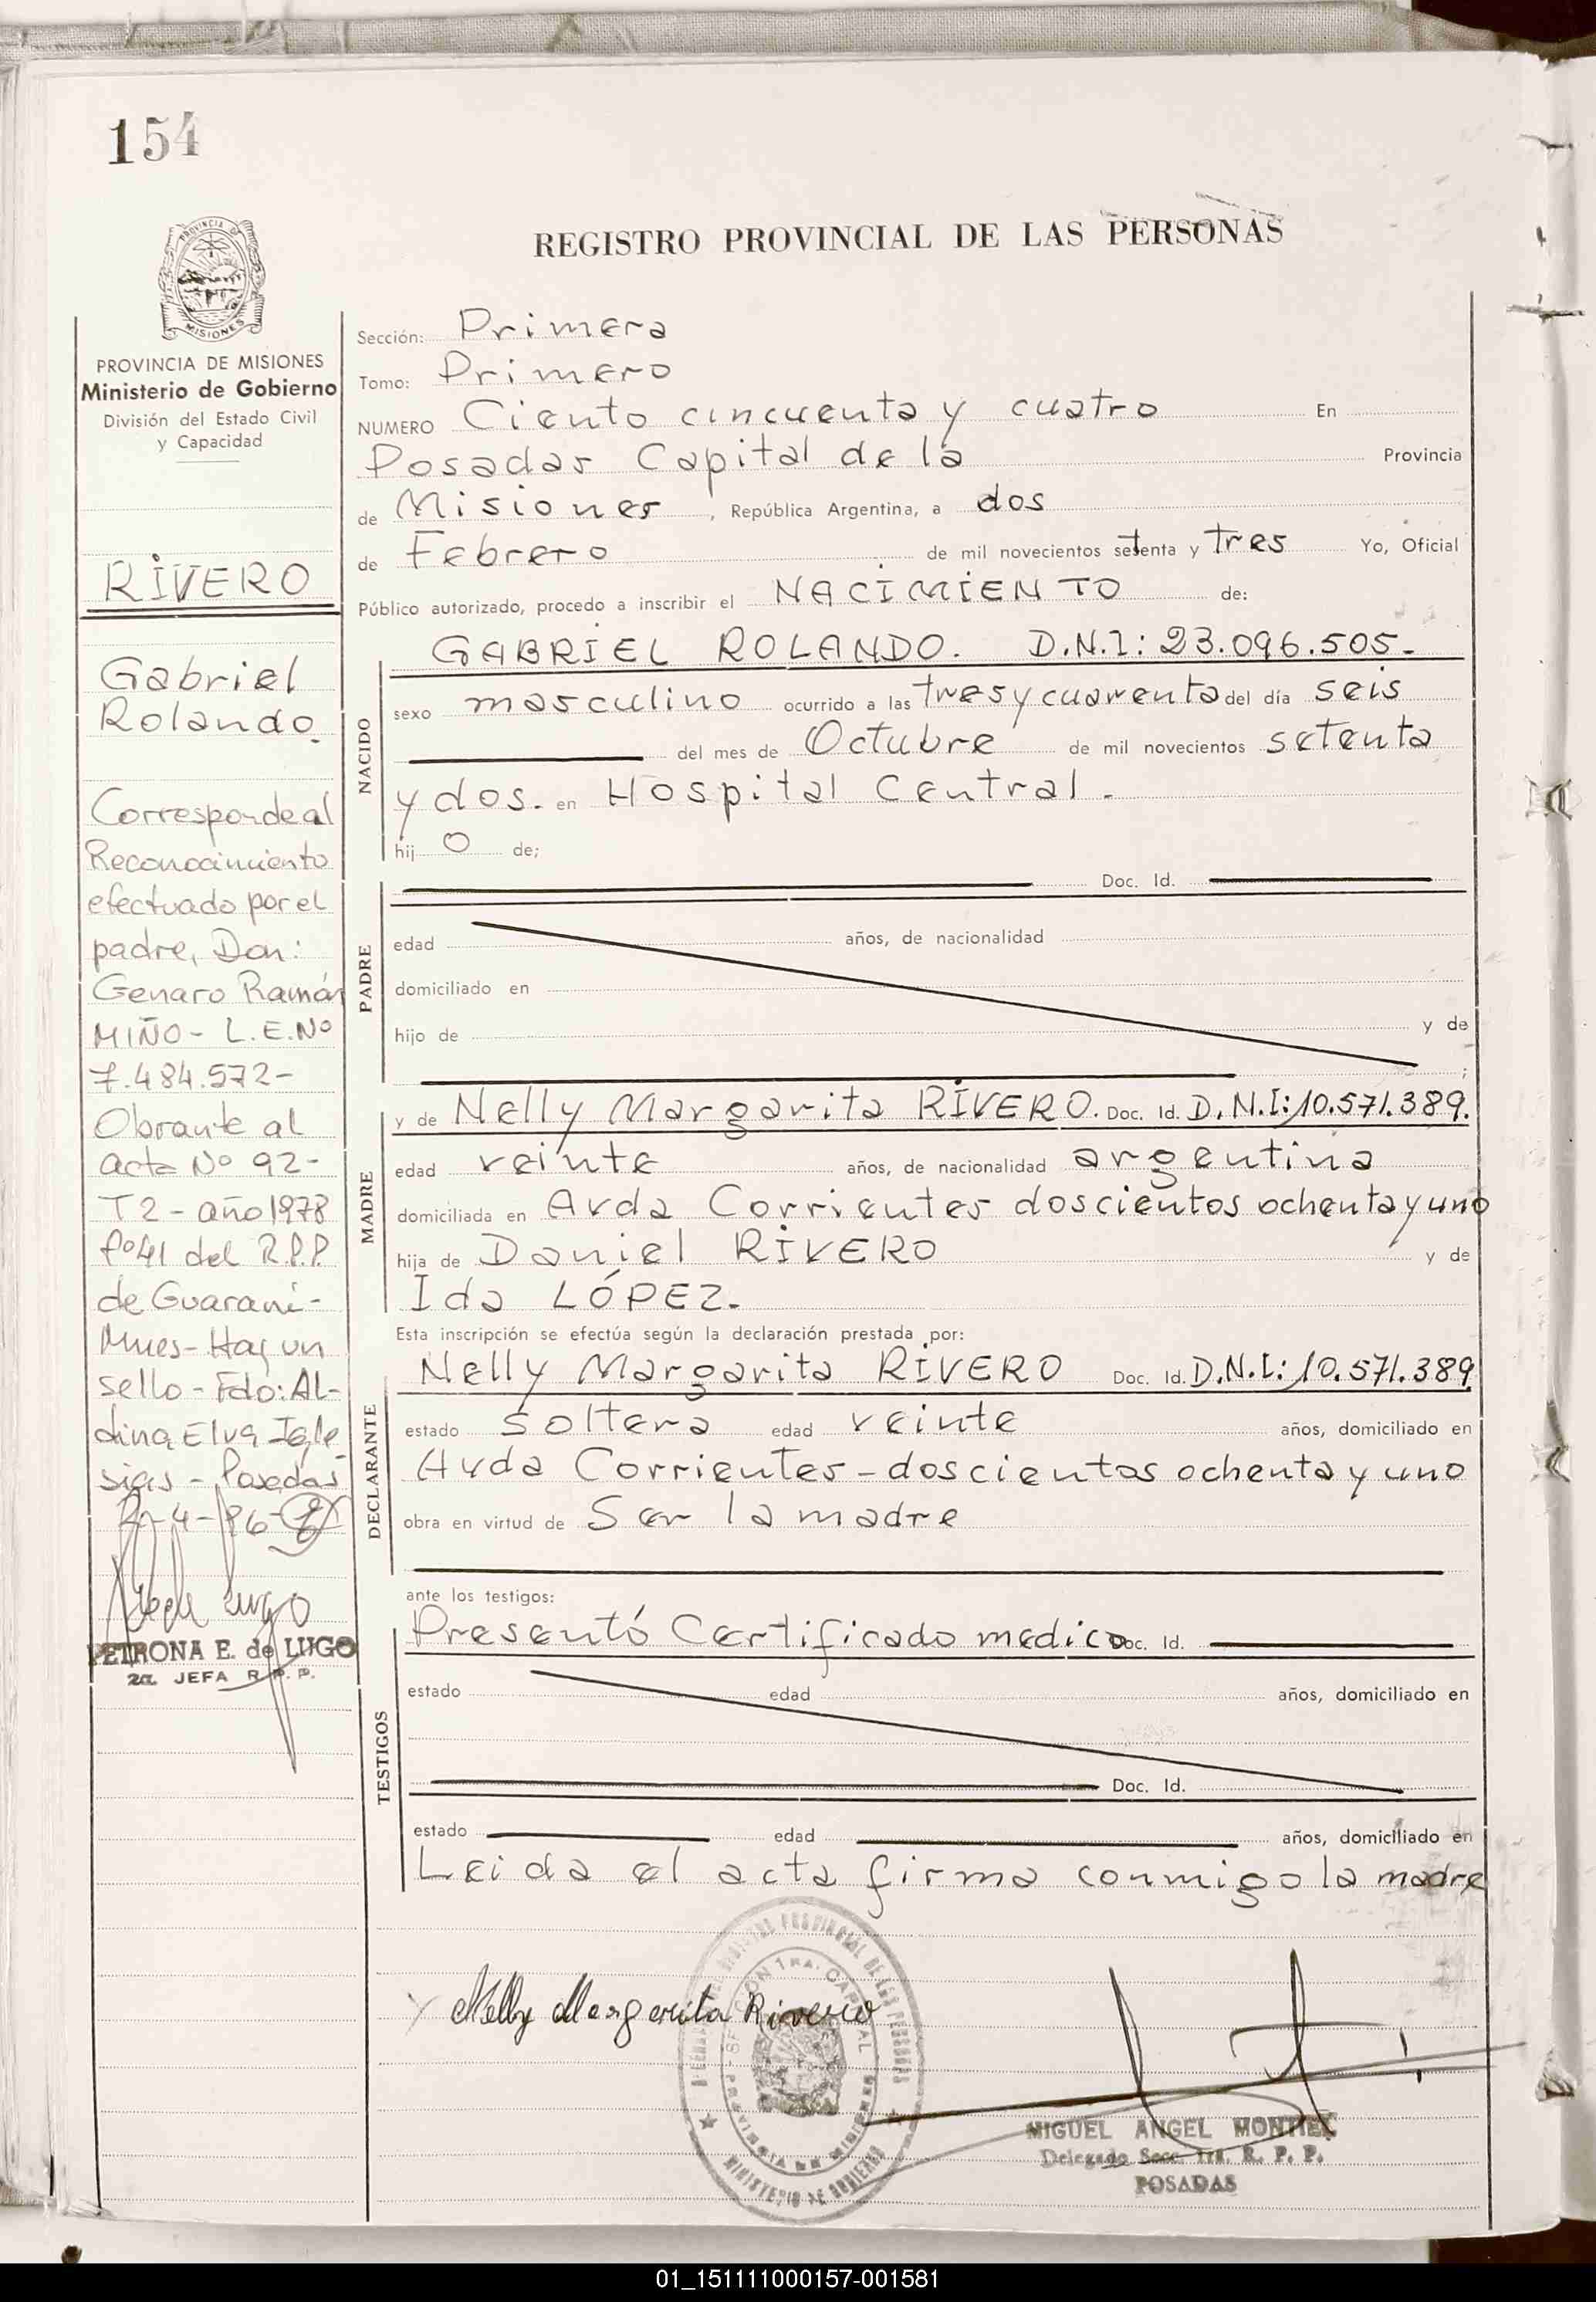 154
REGISTRO PROVINCIAL DE LAS PERSONAS
PROVINCIA DE MISIONES
Ministerio de Gobierno
División del Estado Civil
y Capacidad
RIVERO
Gabriel
Rolando.
Corresponde al
Reconocimiento
efectuado por el
padre, Don:
Genaro Ramón
MIÑO - L.E.Nº
7.484.572-
Obrante al
acta Nº 92-
T2 - año 1978
fº41 del R.P.P.
de Guaraní-
Mnes- Hay un
sello - Fdo: Al-
dina Elva Igle
sias - Posadas
-4-86-
PETRONA E. de LUGO
2a. JEFA R.P.P.
Sección: Primera
Tomo: Primero
NUMERO Ciento cincuenta y cuatro En
Posadas Capital de la Provincia
de Misiones, República Argentina, a dos
de Febrero de mil novecientos setenta y tres Yo, Oficial
Público autorizado, procedo a inscribir el NACIMIENTO de:
NACIDO
GABRIEL ROLANDO. D.N.I: 23.096.505-
sexo masculino ocurrido a las tres y cuarenta del día seis
del mes de Octubre de mil novecientos setenta
y dos. en Hospital Central.
hij o de;
PADRE
Doc. Id.
edad años, de nacionalidad
domiciliado en
hijo de y de
;
MADRE
y de Nelly Margarita RIVERO. Doc. Id. D.N.I: 10.571.389.
edad veinte años, de nacionalidad argentina
domiciliada en Avda Corrientes doscientos ochenta y uno
hija de Daniel RIVERO y de
Ida LÓPEZ.
Esta inscripción se efectúa según la declaración prestada por:
DECLARANTE
Nelly Margarita RIVERO Doc. Id. D.N.I: 10.571.389
estado soltera edad veinte años, domiciliado en
Avda Corrientes - doscientos ochenta y uno
obra en virtud de Ser la madre
ante los testigos:
TESTIGOS
Presentó Certificado medico Doc. Id.
estado edad años, domiciliado en
Doc. Id.
estado edad años, domiciliado en
Leida el acta firma conmigo la madre
Nelly Margarita Rivero
MINISTERIO DE GOBIERNO
MIGUEL ANGEL MONTIEL
Delegado Secc. 1ra. R. P. P.
POSADAS
01_151111000157-001581